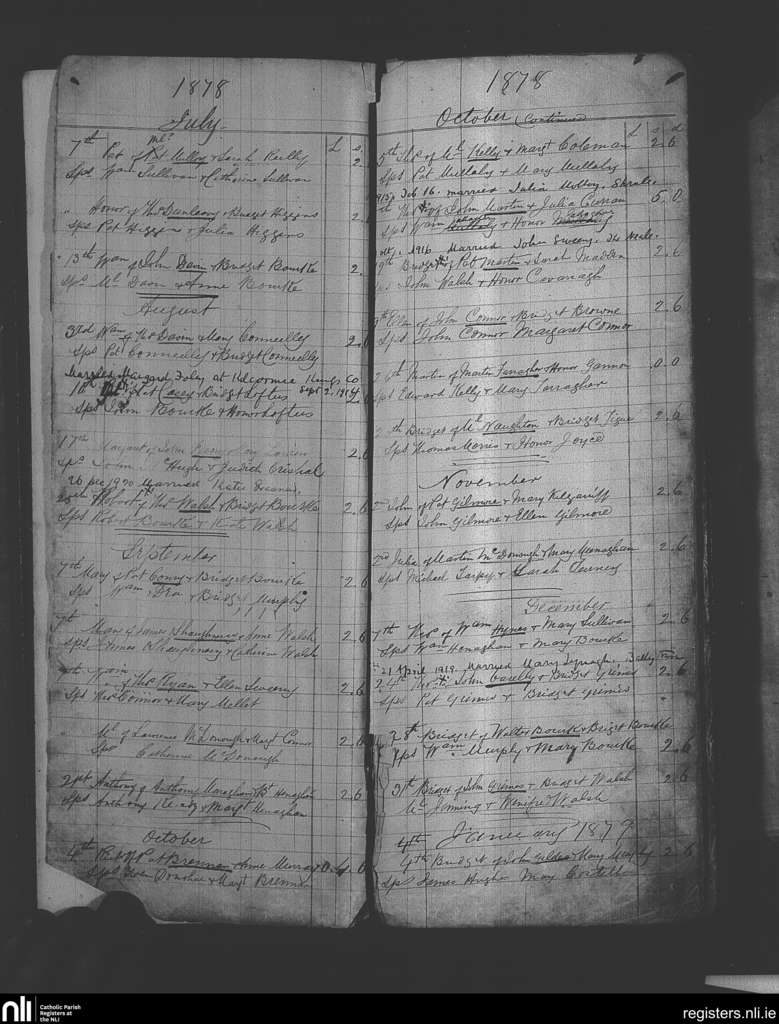 1878
July
£ s
7th Pat of Ml Molloy & Sarah Reilly 2.
Sps Wam Sullivan & Catherine Sullivan
" Honor of Thos Dunleavy & Bridget Higgins 2.6
Sps Pat Higgins & Julia Higgins
13th Wam of John Davin & Bridget Bourke 2.
Sps Ml Davin & Anne Bourke
August
3rd Wam of Thos Davin & Mary Connelly 2.6
Sps Pat Connelly & Bridget Connelly
Married Margaret Foley at Kilcormac Kings Co Sept 2. 1914
10th Pat Casey & Bridget Loftus 2.6
Sps John Bourke & Honor Loftus
17th Margaret of John 2.6
Sps John McHugh & Judith
26 Dec 1920 Married Katie
25th Robert of Thos Walsh & Bridget Bourke 2.6
Sps Robert Bourke & Kate Walsh
September
7th Mary of Pat Conry & Bridget Bourke 2.6
Sps Wam & Bridget Murphy
7th Mary of James Shaughnessy & Anne Walsh 2.6
Sps James O'Shaughnessy & Catherine Walsh
of Thos Ryan & Ellen Sweeny 2.6
Sps Thos Connor & Mary Mellet
" Ml of Lawrence McDonough & Margt Connor 2.6
Sps Catherine McDonough
21st Anthony of Anthony Monaghan & Bt Henaghan 2.6
Sps Anthony & Margt Henaghan
October
4th Pat of Pat Brennan & Anne Murray 0.4.0
Sps Owen Donohue & Margt Brennan
1878
October (Continued)
£ s d
5th of Ml Kelly & Margt Coleman 2.6
Sps Pat Mullahy & Mary Mullahy
1915, Feb 16. married Julia Molloy,
Thos of John Martin & Julia Curran 5.0
Sps Wam & Honor
1916 Married John Sweeny,
19th Bridget of Pat Martin & Sarah Madden 2.6
Sps John Walsh & Honor Cavanagh
Ellen of John Connor & Bridget Browne 2.6
Sps John Connor Margaret Connor
26th Martin of Martin Farragher & Honor Gannon 0.0
Sps Edward Kelly & Mary Farragher
Bridget of Ml Naughton & Bridget Tigue 2.6
Sps Thomas Morris & Honor Joyce
November
2nd John of Pat Gilmore & Mary Kilgariff 2.6
Sps John Gilmore & Ellen Gilmore
2nd Julia of Martin McDonough & Mary Monaghan 2.6
Sps Michael Tarpey & Sarah
December
7th Thos of Wam Hynes & Mary Sullivan 2.6
Sps Wam Henaghan & Mary Bourke
21 April 1919. Married Mary
24th Thos of John Varelly & Bridget Grimes 2.6
Sps Pat Grimes & Bridget Grimes
25th Bridget of Walter Bourke & Briget Bourke
Sps Wam Murphy & Mary Bourke 2.6
31th Bridget of John Grimes & Bridget Walsh 2.6
Ml Jenning & Winifred Walsh
January 1879
4th Bridget of John Gildea & Mary Murphy 2.6
Sps James Hughes Mary Costello
nli Catholic Parish
Registers at
the NLI
registers.nli.ie